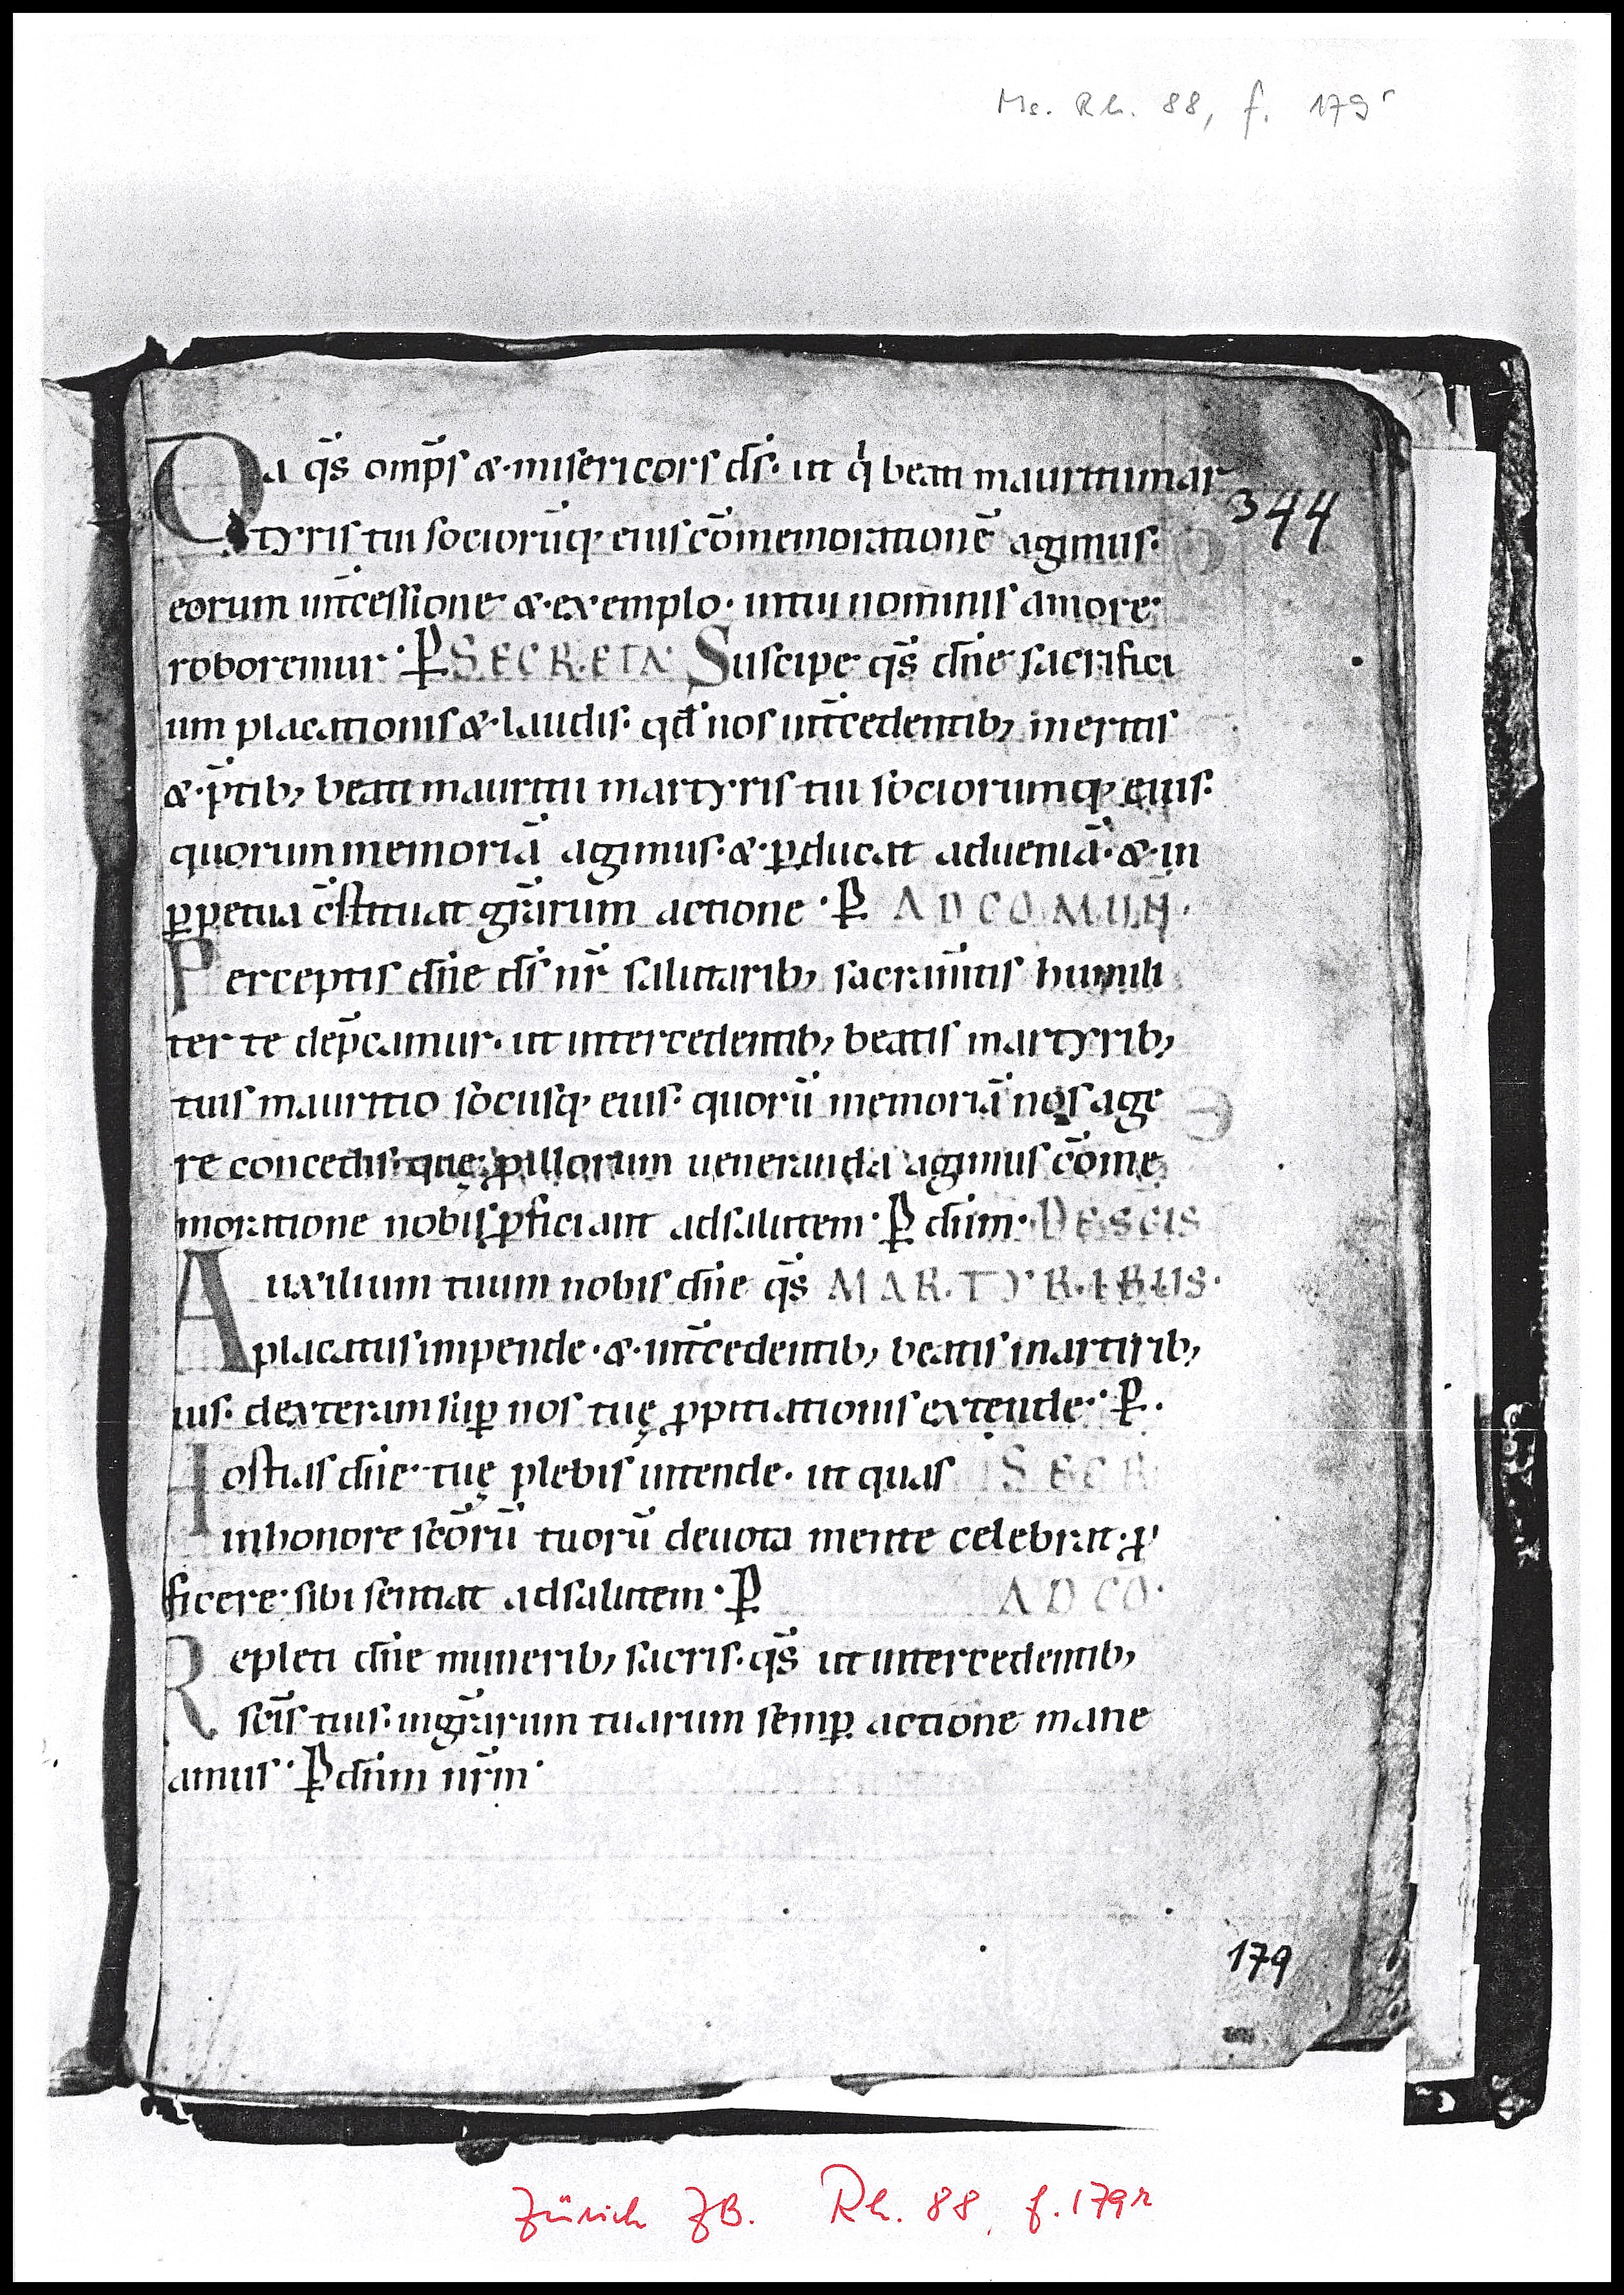 Ms. Rh. 88, f. 179r
Da q̄s omp̄s & misericors d̄s· ut qͥ beati mauritii mar
344
tyris tuiociorūq; eius cōmemorationē agimus·
eorum int̄cessione & exemplo· in tui nominis amore
roboremur· P̲ SECRETA Suscipe q̄s dn̄e sacrifici
um placationis & laudis· qđ nos int̄cedentib; meritis
& p̄tib; beati mauritii martyris tui sociorumq; eius·
quorum memoriā agimus· & ꝑducat ad ueniā· & in
ꝑpetua c̄stituat gr̄arum actione· P̲ AD COMUN̄·
Perceptis dn̄e d̄s nr̄ salutarib; sacram̄tis humili
ter te dep̄camur· ut intercedentib; beatis martyrib;
tuis mauritio sociisq; eius· quorū memoriā nos age
re concedis· quę ꝓ illorum ueneranda agimus cōme
moratione nobis ꝓficiant ad salutem· P̲ dn̄m· DE SC̄IS
Auxilium tuum nobis dn̄e q̄s MARTYRIBUS·
placatus impende· & int̄cedentib; beatis martirib;
tuis· dexteram suꝑ nos tuę ꝓpitiationis extende· P̲·
Hostias dn̄e· tuę plebis intende· ut quas SECR
in honore sc̄orū tuorū deuota mente celebrat· ꝓ
ficere· sibi sentiat ad salutem· P̲ AD CŌ·
Repleti dn̄e munerib; sacris· q̄s ut intercedentib;
sc̄is tuis· in gr̄arum tuarum semꝑ actione mane
amus· P̲ dn̄m nr̄m·
179
Zürich ZB. Rh. 88, f. 179r